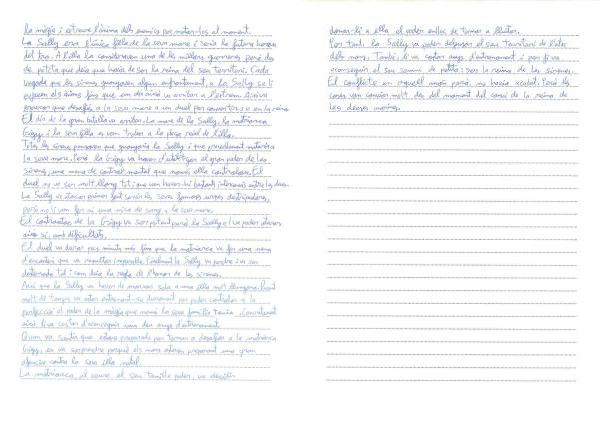 la màgia i extreure l'ànima dels enemics per matar-los al moment.
La Sally era l'única filla de la seva mare i seria la futura hereva
del tro. A l'illa la consideraven una de les millors guerreres però des
de petita que deia que havia de ser la reina del seu territori. Cada
vegada que les sirenes guanyaven algun enfrontament, a la Sally se li
pujaven els ànims fins que un dia això va arribar a l'extrem. Així va
enviar que desafiés a la seva mare a un duel per convertir-se en la reina.
El dia de la gran batalla va arribar. La mare de la Sally, la matriarca
Gigy, i la seva filla es van trobar a la plaça reial de l'illa.
Totes les sirenes pensaven que guanyaria la Sally i que finalment mataria
la seva mare. Però la Gigy va haver d'utilitzar el gran poder de les
sirenes, una mena de control mental que només ella controlava. El
duel va ser molt llarg tot i que van haver-hi bastants intercanvis entre les dues.
La Sally va atacar primer fent servir les seves famoses urpes destripadores,
però no li van fer ni una mica de sang a la seva mare.
El contraatac de la Gigy va ser potent però la Sally el va poder aturar
això sí, amb dificultats.
El duel va durar pocs minuts més fins que la matriarca va fer una mena
d'encanteri que va resultar imparable. Finalment la Sally va perdre i va ser
desterrada tal i com deia la regla de l'honor de les sirenes.
Així que la Sally va haver de marxar sola a una illa molt llunyana. Passat
molt de temps va estar entrenant-se durament per poder controlar a la
perfecció el poder de la màgia que només la seva família tenia. Concretament
això li va costar d'aconseguir vam deu anys d'entrenament.
Quan va sentir que estava preparada per tornar a desafiar a la matriarca
Gigy, es va sorprendre perquè els nans estaven preparant una gran
ofensiva contra la seva illa natal.
La matriarca, al veure el seu temible poder, va decidir
donar-li a ella el poder enlloc de tornar a lluitar.
Per tant la Sally va poder defensar el seu territori de l'atac
dels nans. També li va costar anys d'entrenament i per fi va
aconseguir el seu somni de petita: ser la reina de les sirenes.
El conflicte en aquell món però, no havia acabat. Però les
coses van canviar molt des del moment del canvi de la reina de
les deesses marines.